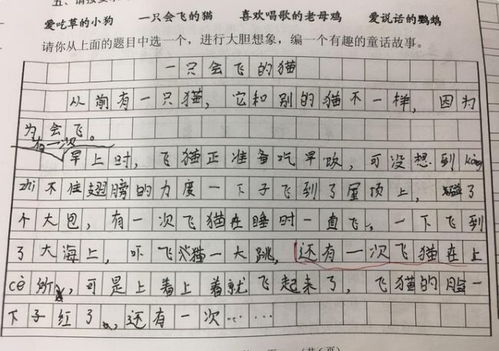 爱吃草的小狗 一只会飞的猫 喜欢唱歌的老母鸡 爱说话的鹦鹉
请你从上面的题目中选一个，进行大胆想象，编一个有趣的童话故事。
一只会飞的猫
从前有一只猫，它和别的猫不一样，因为
为会飞。
有一次
早上时，飞猫正准备吃早饮，可没想到kòng
zhì不住翅膀的力度一下子飞到了屋顶上，了
个大包，有一次飞猫在睡时一直飞，一下飞到
了大海上，吓飞猫一大跳，还有一次飞猫在上
cè所，可是上着上着就飞起来了，飞猫的脸一
下子红了，还有一次……